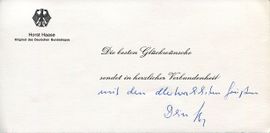 Horst Haase
Mitglied des Deutschen Bundestages
Die besten Glückwünsche
sendet in herzlicher Verbundenheit
mit den